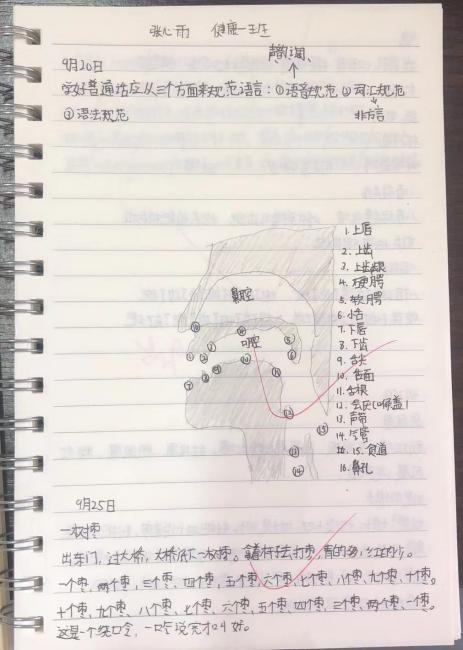 张心雨 健康一班
9月20日
声韵调
学好普通话应从三个方面来规范语言：①语音规范 ②词汇规范
③语法规范 非方言
1. 上唇
2. 上齿
3. 上齿龈
4. 硬腭
5. 软腭
6. 小舌
7. 下唇
8. 下齿
9. 舌尖
10. 舌面
11. 舌根
12. 会厌(喉盖)
13. 声带
14. 气管
15. 食道
16. 鼻孔
鼻腔
口腔
9月25日
一枚枣
出东门，过大桥，大桥底下一枚枣。拿着杆子去打枣，青的多，红的少。
一个枣，两个枣，三个枣，四个枣，五个枣，六个枣，七个枣，八个枣，九个枣，十个枣。
十个枣，九个枣，八个枣，七个枣，六个枣，五个枣，四个枣，三个枣，两个枣，一个枣。
这是一个绕口令，一口气说完才叫好。